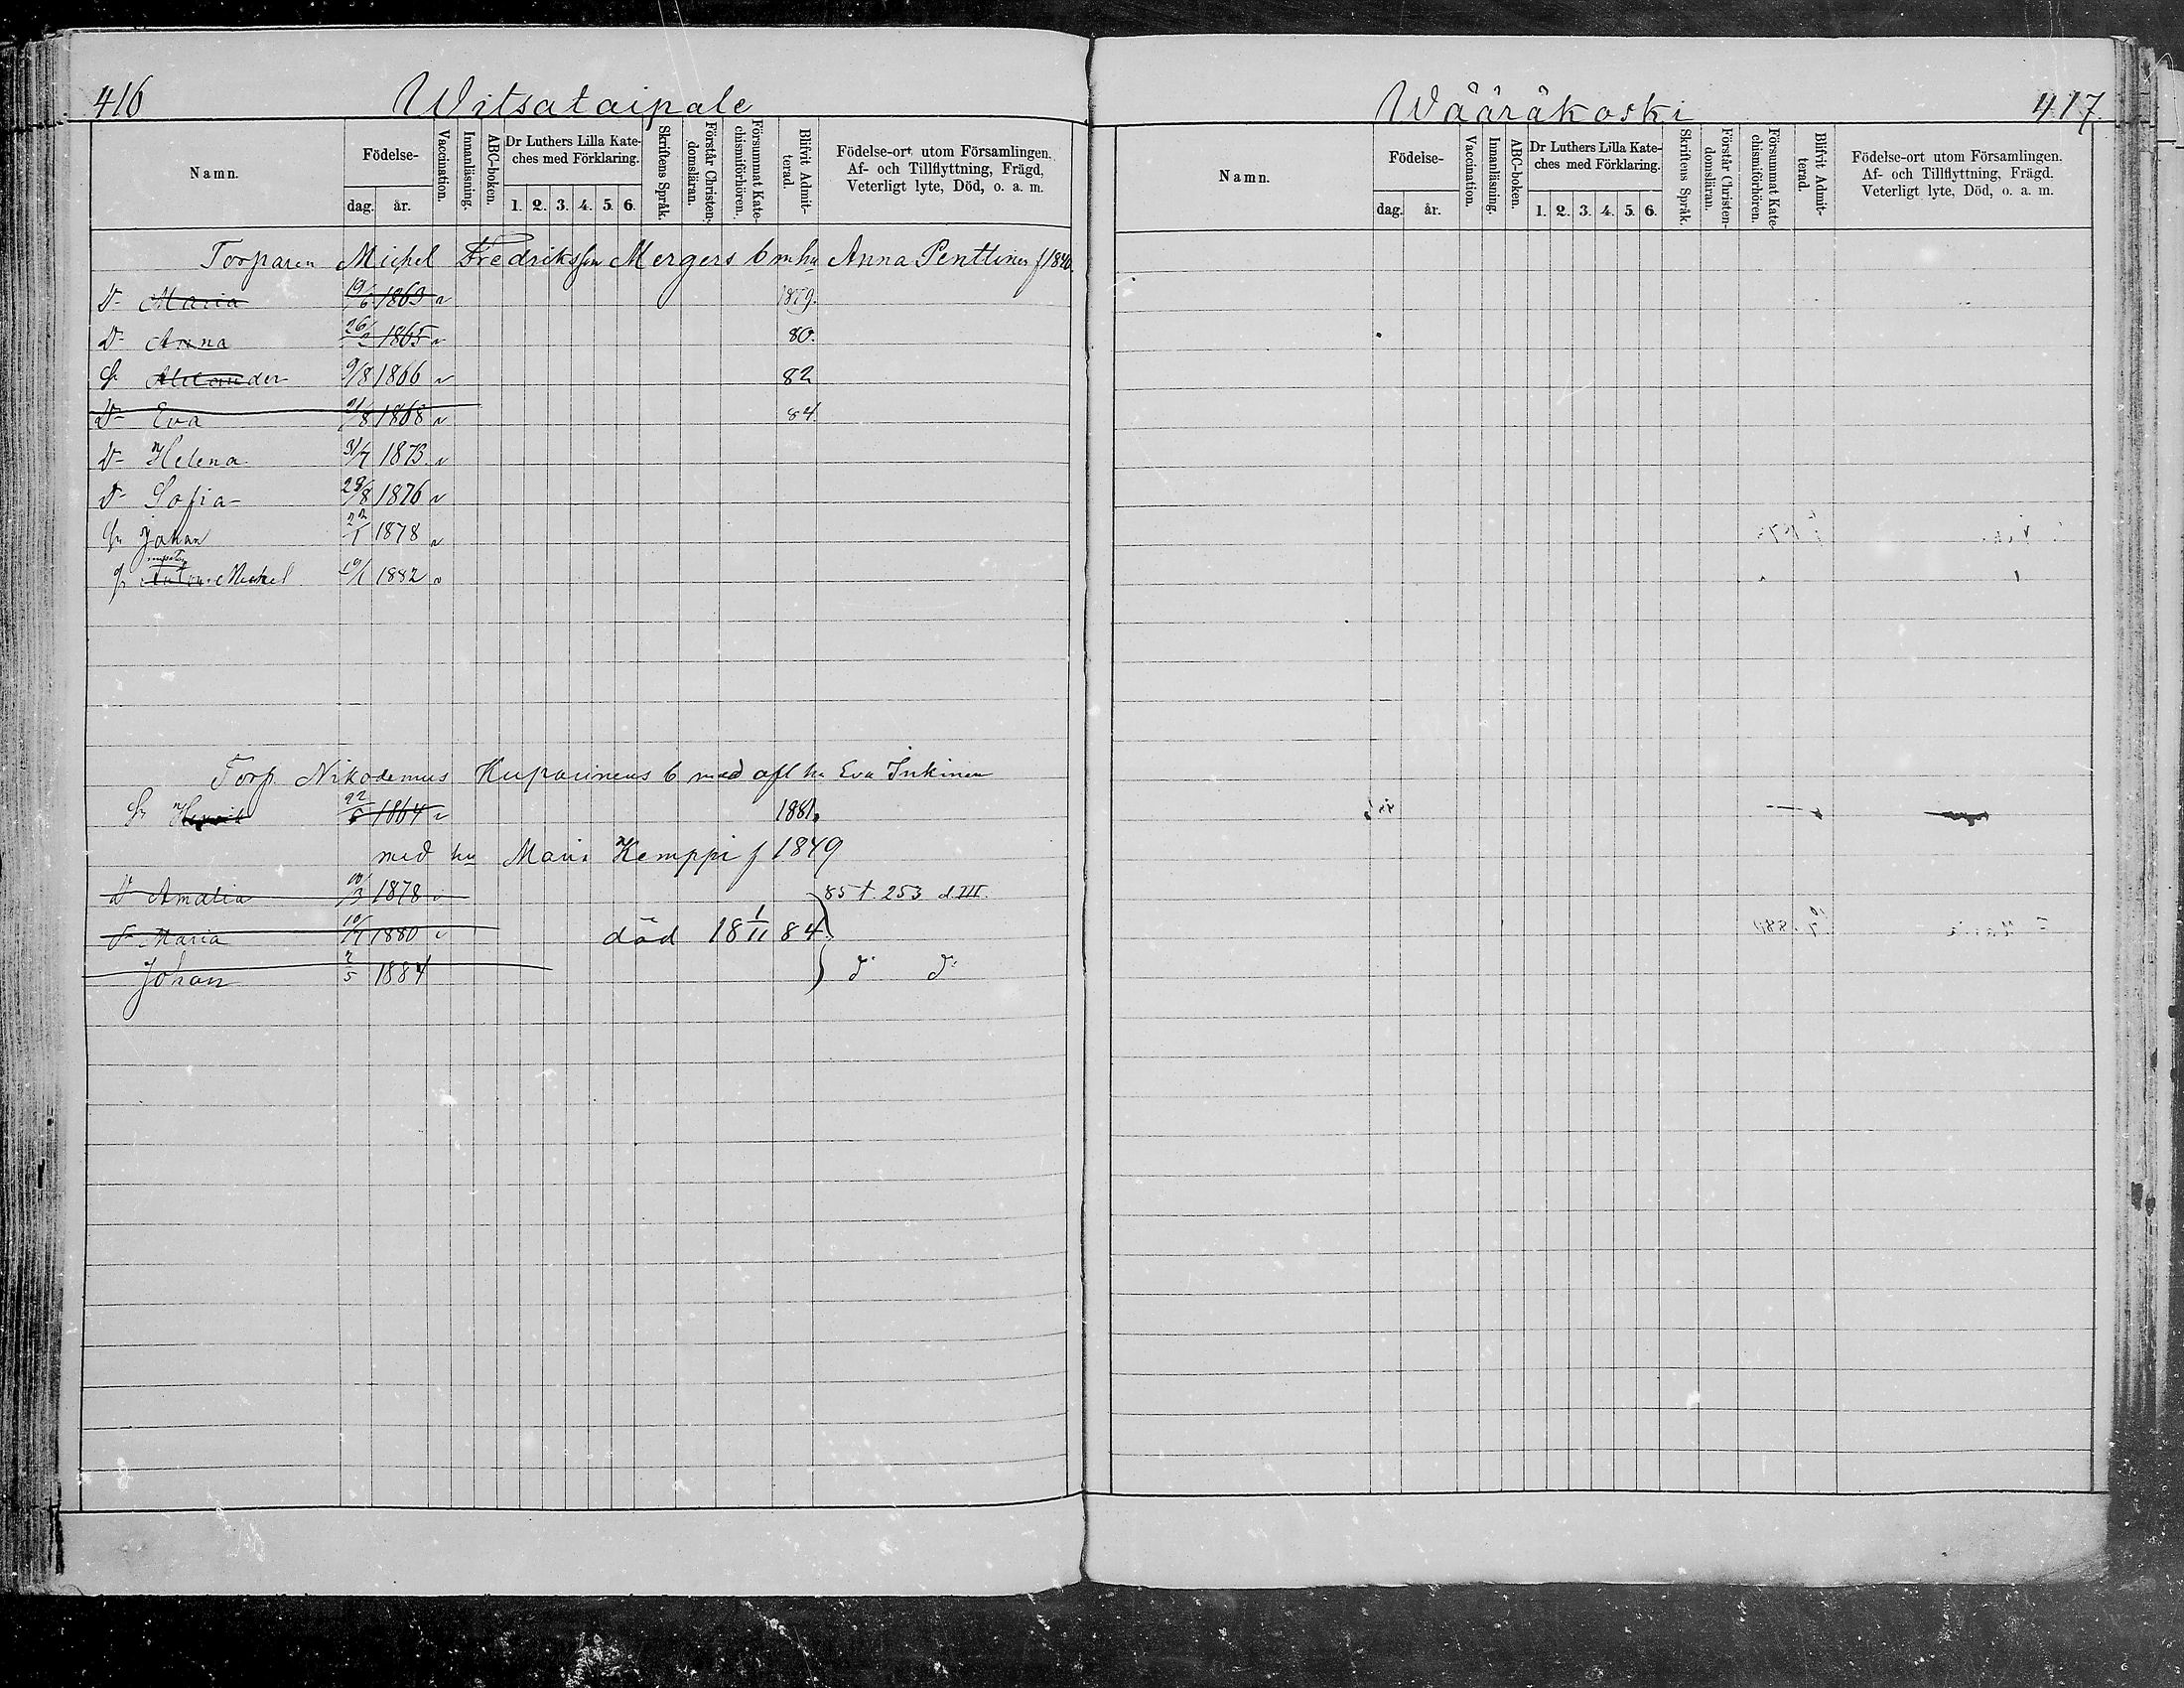 416 Witsataipale
Namn. Födelse- dag. år. Vaccination. Innanläsning. ABC-boken. Dr Luthers Lilla Kateches med Förklaring. 1. 2. 3. 4. 5. 6. Skriftens Språk. Förstår Christendomsläran. Försummat Katechismiförhören. Blifvit Admitterad. Födelse-ort utom Församlingen. Af- och Tillflyttning, Frägd, Veterligt lyte, Död, o. a. m.
Torparen Michel Fredriksson Mergers b m hu Anna Penttinen f 1840
Dr Maria 19/6 1863 v 1879.
Dr Anna 26/2 1865 v 80.
Sn Alexander 9/8 1866 v 82
Dr Eva 21/8 1868 v 84.
Dr Helena 31/7 1873 v
Dr Sofia 29/8 1876 v
Sn Johan 22/1 1878 v
Sn Michel 19/1 1882 v
Torp. Nikodemus Kuparinens b med afl hu Eva Inkinen
Sn Henrik 22/5 1864 v 1881.
med hu Maria Kemppi f 1849
Dr Amalia 10/3 1878 v 85 t. 253 d. III.
Dr Maria 10/7 1880 v död 18 1/11 84.
Johan 2/5 1884 do do
Wääräkoski 417.
Namn. Födelse- dag. år. Vaccination. Innanläsning. ABC-boken. Dr Luthers Lilla Kateches med Förklaring. 1. 2. 3. 4. 5. 6. Skriftens Språk. Förstår Christendomsläran. Försummat Katechismiförhören. Blifvit Admitterad. Födelse-ort utom Församlingen. Af- och Tillflyttning, Frägd. Veterligt lyte, Död, o. a. m.